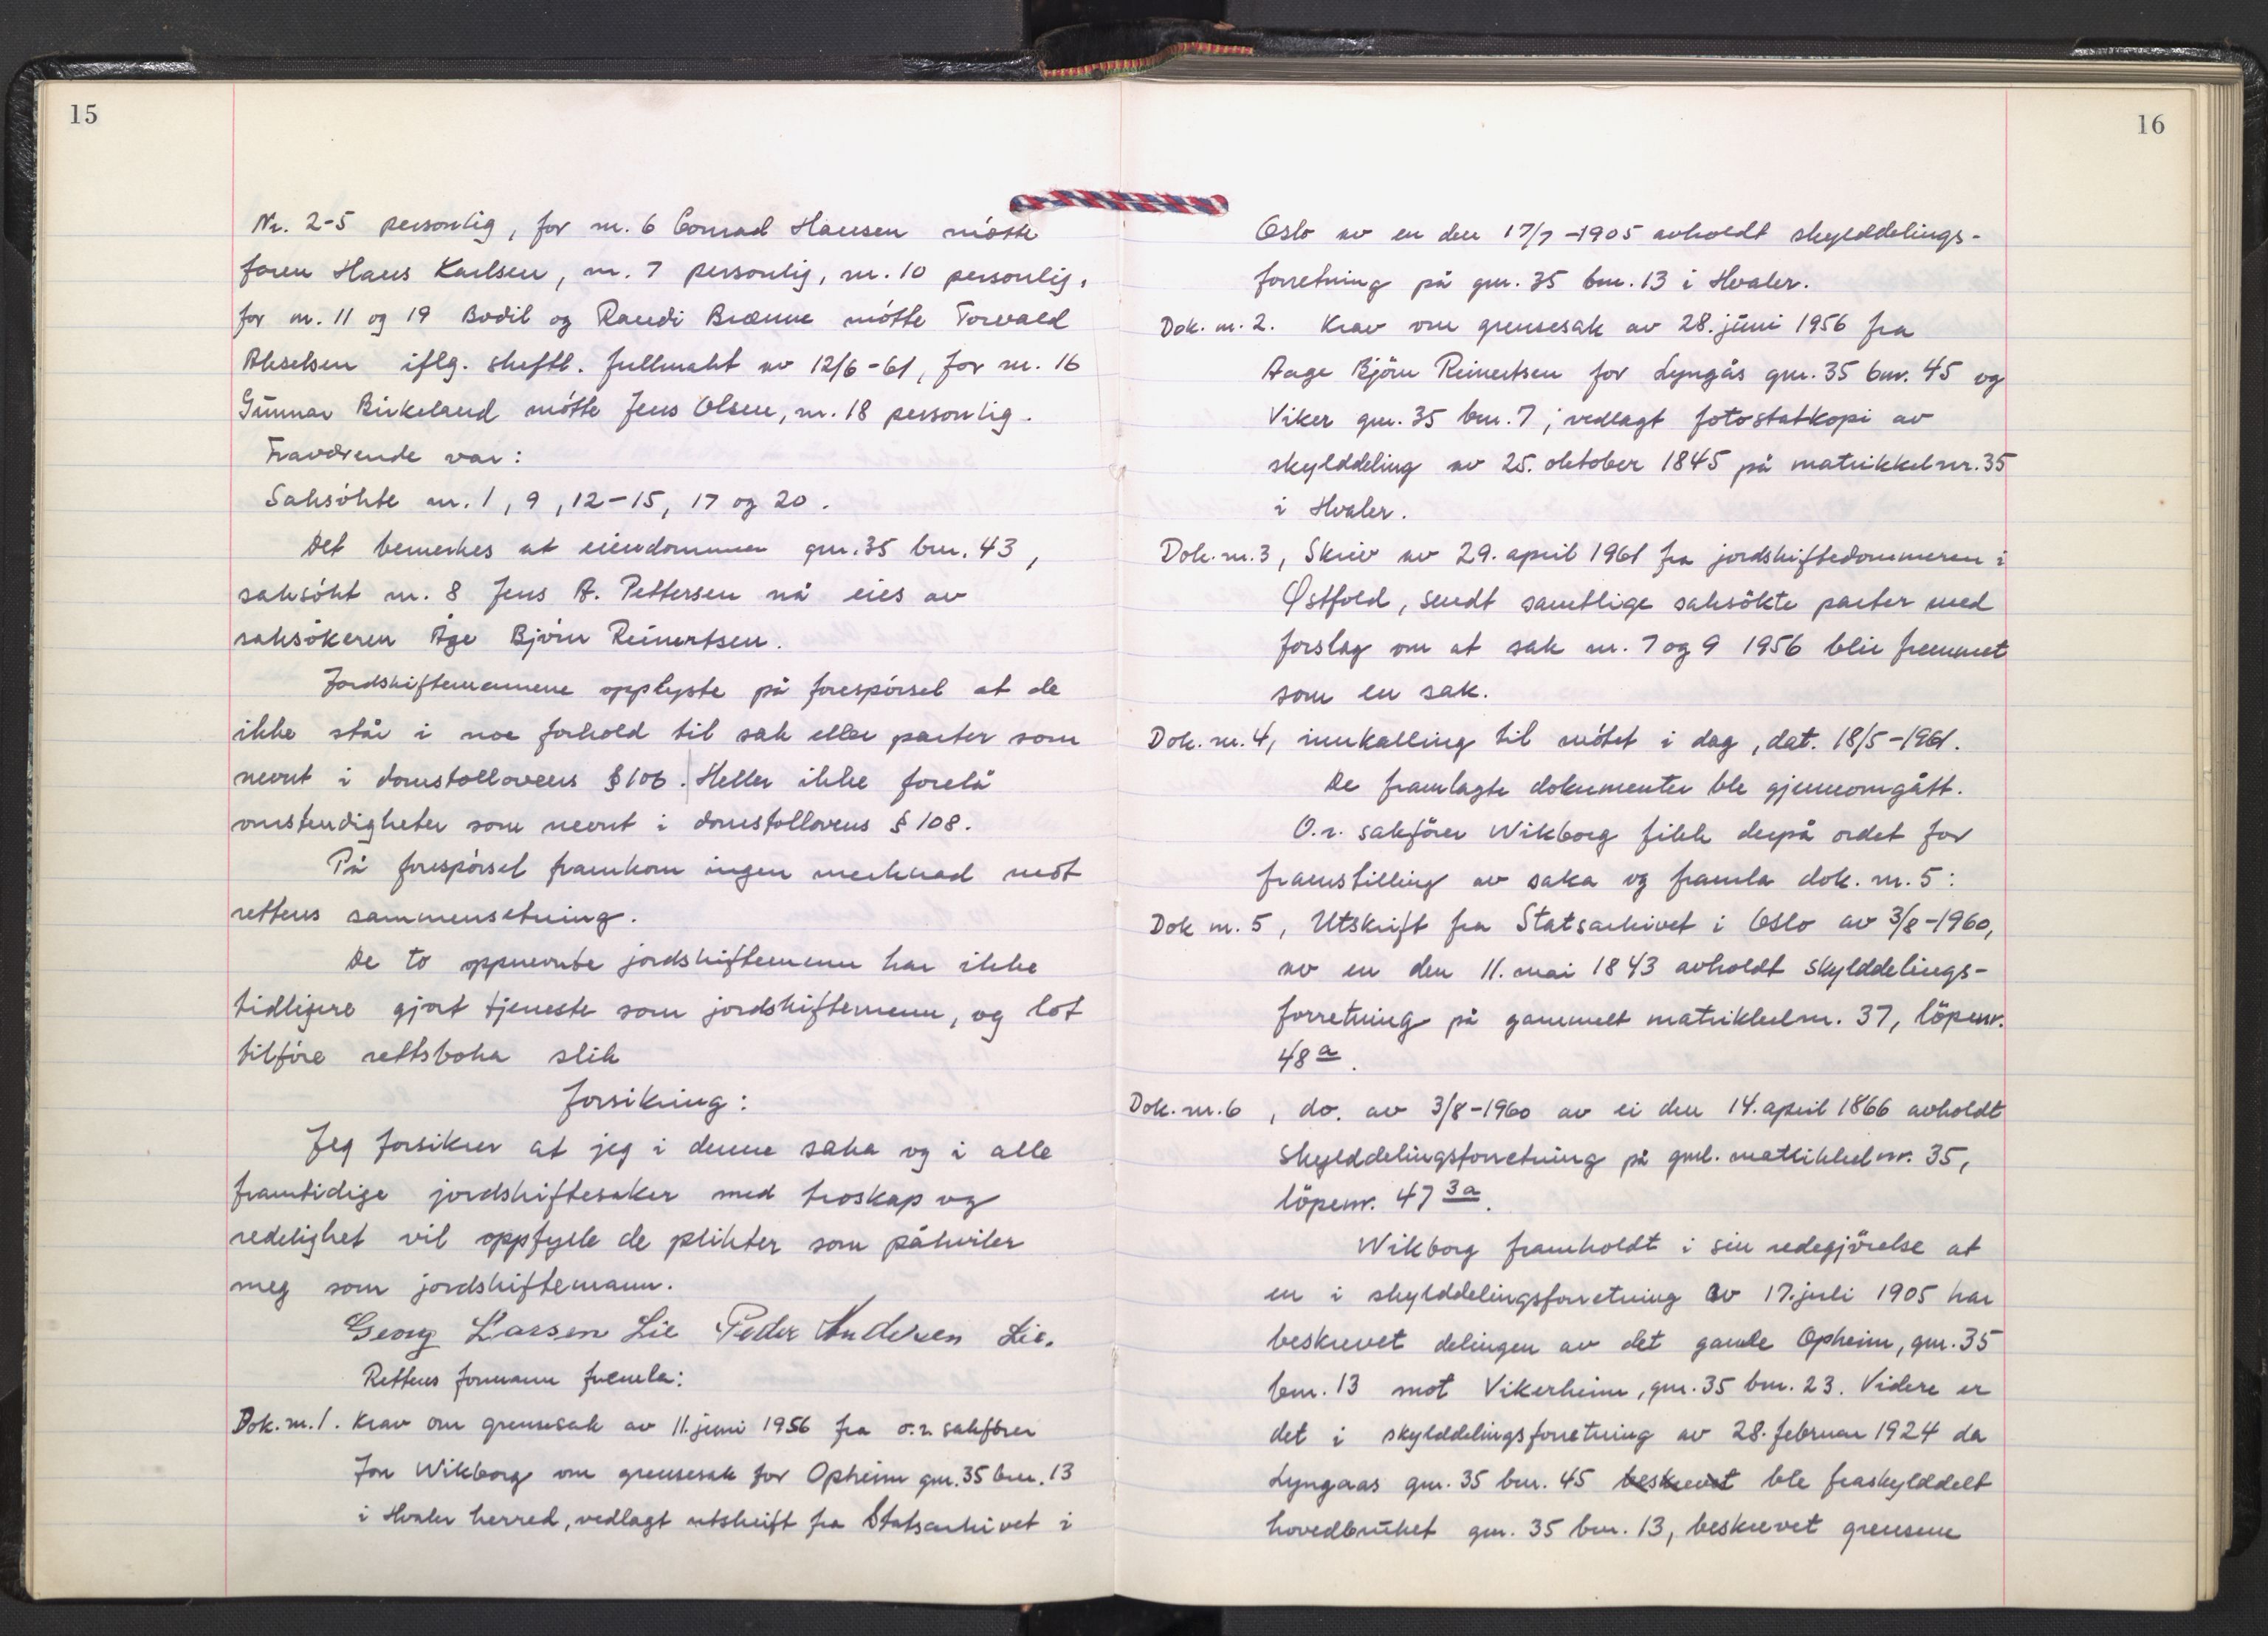 15
Nr. 2-5 personlig, for nr. 6 Conrad Hansen møtte
faren Hans Karlsen, nr. 7 personlig, nr. 10 personlig,
for nr. 11 og 19 Bodil og Randi Brænne møtte Torvald
Akselsen iflg. skriftl. fullmakt av 12/6-61, for nr. 16
Gunnar Birkeland møtte Jens Olsen, nr. 18 personlig.
Fraværende var:
Saksökte nr. 1, 9, 12-15, 17 og 20.
Det bemerkes at eiendommen gnr. 35 bnr. 43,
saksökt nr. 8 Jens A. Pettersen nå eies av
saksökeren Åge Björn Reinertsen.
Jordskiftemennene opplyste på forespörsel at de
ikke står i noe forhold til sak eller parter som
nevnt i domstollovens § 106. Heller ikke forelå
omstendigheter som nevnt i domstollovens § 108.
På forespörsel framkom ingen merknad mot
rettens sammensetning.
De to oppnevnte jordskiftemenn har ikke
tidligere gjort tjeneste som jordskiftemenn, og lot
tilföre rettsboka slik
forsikring:
Jeg forsikrer at jeg i denne saka og i alle
framtidige jordskiftesaker med troskap og
redelighet vil oppfylle de plikter som påhviler
meg som jordskiftemann.
Georg Larsen Lie Peder Andersen Lie.
Rettens formann fremla:
Dok. nr. 1. Krav om grensesak av 11. juni 1956 fra o.r. sakförer
Jon Wikborg om grensesak for Opheim gnr. 35 bnr. 13
i Hvaler herred, vedlagt utskrift fra Statsarkivet i
16
Oslo av en den 17/7-1905 avholdt skylddelings-
forretning på gnr. 35 bnr. 13 i Hvaler.
Dok. nr. 2. Krav om grensesak av 28. juni 1956 fra
Aage Björn Reinertsen for Lyngås gnr. 35 bnr. 45 og
Viker gnr. 35 bnr. 7, vedlagt fotostatkopi av
skylddeling av 25. oktober 1845 på matrikkelnr. 35
i Hvaler.
Dok. nr. 3, Skriv av 29. april 1961 fra jordskiftedommeren i
Østfold, sendt samtlige saksökte parter med
forslag om at sak nr. 7 og 9 1956 blir fremmet
som en sak.
Dok. nr. 4, innkalling til mötet i dag, dat. 18/5-1961.
De framlagte dokumenter ble gjennomgått.
O.r. sakförer Wikborg fikk derpå ordet for
framstilling av saka og framla dok. nr. 5:
Dok nr. 5, Utskrift fra Statsarkivet i Oslo av 3/8-1960,
av en den 11. mai 1843 avholdt skylddelings-
forretning på gammelt matrikkelnr. 37, löpenr.
48 a.
Dok. nr. 6, do. av 3/8-1960 av ei den 14. april 1866 avholdt
skylddelingsforretning på gml. matrikkelnr. 35,
löpenr. 47 3a.
Wikborg framholdt i sin redegjörelse at
en i skylddelingsforretning av 17. juli 1905 har
beskrevet delingen av det gamle Opheim, gnr. 35
bnr. 13 mot Vikerheim, gnr. 35 bnr. 23. Videre er
det i skylddelingsforretning av 28. februar 1924 da
Lyngaas gnr. 35 bnr. 45 beskrevet ble fraskylddelt
hovedbruket gnr. 35 bnr. 13, beskrevet grensene